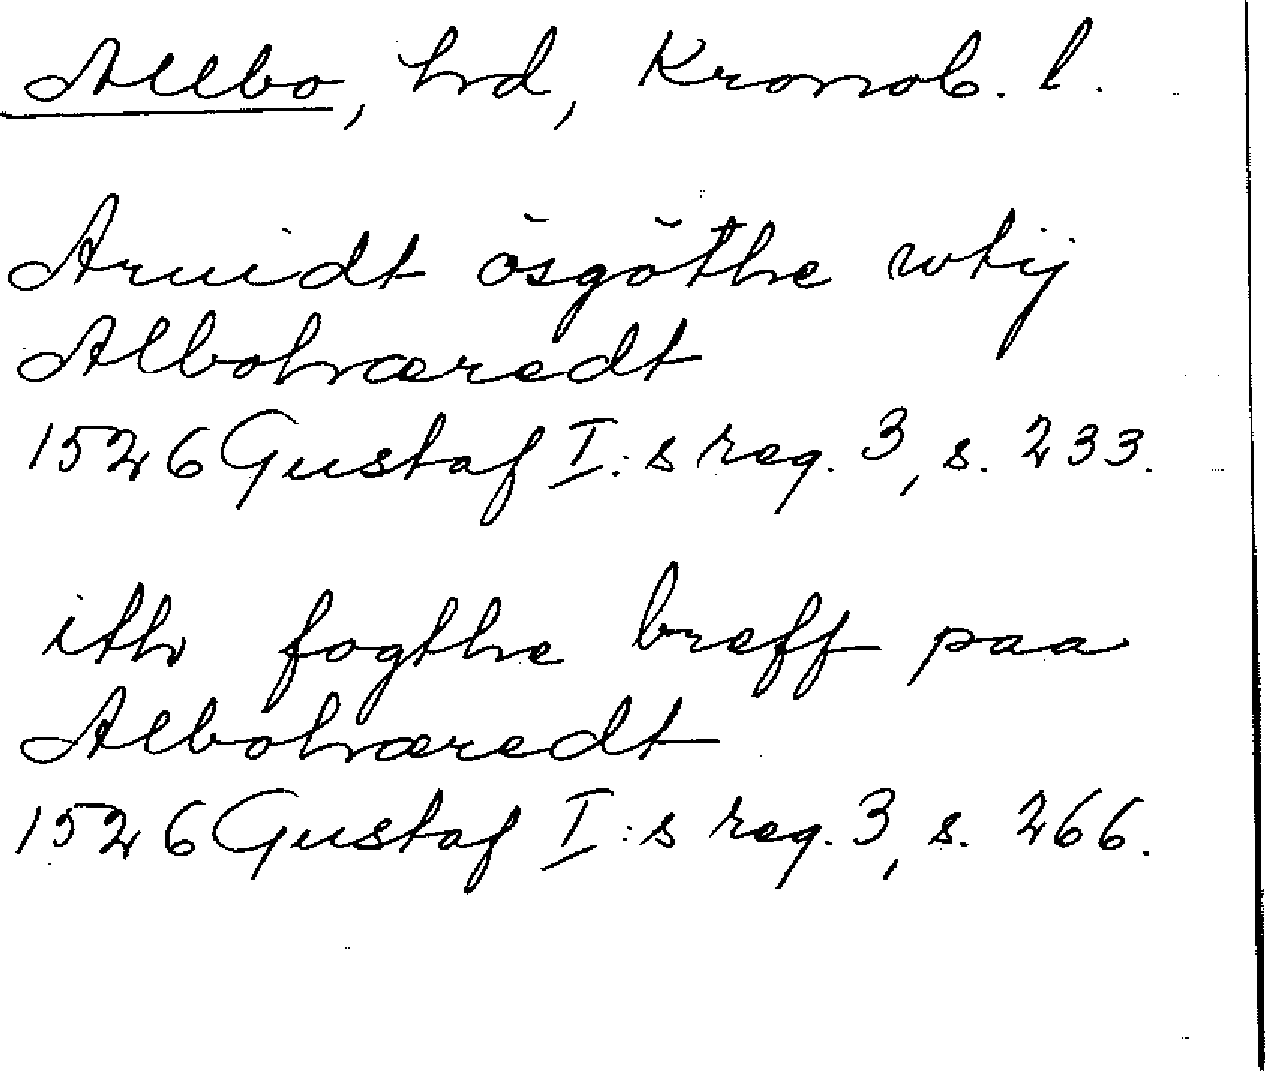 Allbo, hrd, Kronob. l.
Aruidt ösgöthe wtij
Albohæredt
1526 Gustaf I:s reg. 3, s. 233.
ith fogthe breff paa
Albohæredt
1526 Gustaf I:s reg. 3, s. 266.